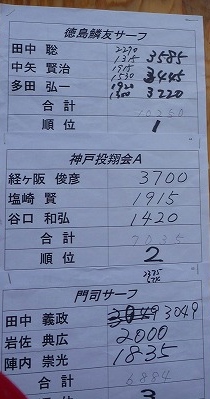 徳島鱗友サーフ
田中 聡 2270 1315 3585
中矢 賢治 1915 1530 3445
多田 弘一 1920 1300 3220
合計 10250
順位 1
神戸投翔会A
経ヶ阪 俊彦 3700
塩崎 賢 1915
谷口 和弘 1420
合計 7035
順位 2
門司サーフ
田中 義政 3049
岩佐 典広 2000
陣内 崇光 1835
合計 6884
3